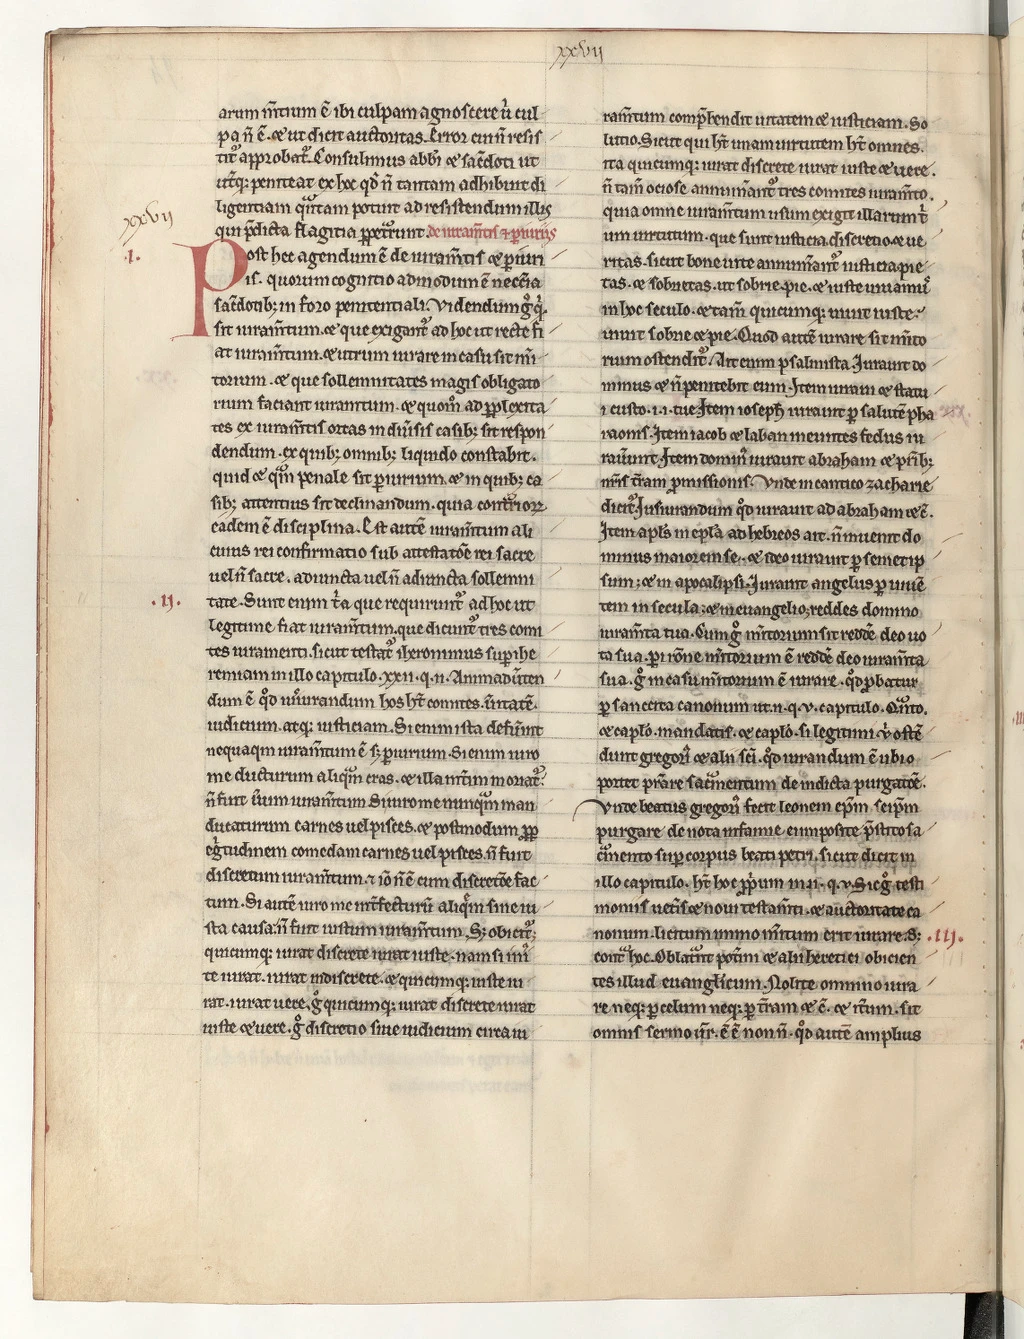 xxvii
arum m̄tium ē ibi culpam agnoscere ů cul
pa n̄ ē. ⁊ ut dicit auctoritas. Error cui n̄ resis
tit᷑ approbat᷑. Consulimus abbi ⁊ sac̄doti ut
ut̄q; peniteat ex hoc qd̄ n̄ tantam adhibuit di
ligentiam quātam potuit ad resistendum illis
qui p̄dicta flagitia ppet̄runt. de iuram̄tis ⁊ piuriis
xxvii
.I.
Post hec agendum ē de iuram̄tis ⁊ piuri
is. quorum cognitio admodum ē neccīa
sac̄dotib; in foro penitentiali. Videndum g̊ q̇.
sit iuram̄tum. ⁊ que exigant᷑ ad hoc ut recte fi
at iuram̄tum. ⁊ utrum iurare in casu sit m̄i
torium. ⁊ que sollemnitates magis obligato
rium faciant iuram̄tum. ⁊ quom̊ ad pplexita
tes ex iuram̄tis ortas in diu̇sis casib; sit respon
dendum. ex quib; omnib; liquido constabit.
quid ⁊ qm̄ penale sit piurium. ⁊ in quib; ca
sib; attentius sit declinandum. quia cont̄rior2
eadem ē disciplina. Est autē iuram̄tum ali
cuius rei confirmatio sub attestatōe rei sacre
uel n̄ sacre. adiuncta uel n̄ adiuncta sollemni
.II.
tate. Sunt enim t̄a que requirunt᷑ ad hoc ut
legitime fiat iuram̄tum. que dicunt᷑ tres comi
tes iuramenti. sicut testat᷑ iheronimus sup ihe
remiam in illo capitulo. xxii. q. ii. Animadu̇ten
dum ē qd̄ iusiurandum hos ht̄ comites. ūitatē.
iudicium. atq; iusticiam. Si enim ista defuīnt
nequaqm iuram̄tum ē s; piurium. Si enim iuro
me ducturum aliqm̄ cras. ⁊ illa int̄im moriat᷑.
n̄ fuit ůum iuram̄tum. Si iuro me nunqm̄ man
ducaturum carnes uel pisces. ⁊ postmodum pp
eg̊tudinem comedam carnes uel pisces. n̄ fuit
discretum iuram̄tum. ⁊ iō n̄ ē cum discretōe fac
tum. Si autē iuro me int̄fecturū aliqm̄ sine iu
sta causa. n̄ fuit iustum iuram̄tum. S; obicit᷑;
quicumq; iurat discrete iurat iuste. nam si ini
te iurat. iurat indiscrete. ⁊ quicumq; iuste iu
rat. iurat uere. g̊ quicumq; iurat discrete iurat
iuste ⁊ uere. g̊ discretio siue iudicium circa iu
ram̄tum comp̄hendit uitatem ⁊ iusticiam. So
lutio. Sicut qui ht̄ unam uirtutem ht̄ omnes.
ita quicumq; iurat discrete iurat iuste ⁊ uere.
n̄ tam̄ ociose annum̄ant᷑ tres comites iuram̄to.
quia omne iuram̄tum usum exigit illarum t̄
um uirtutum. que sunt iusticia. discretio. ⁊ ue
ritas. sicut bone uite annum̄ant᷑ iusticia pie
tas. ⁊ sobrietas. ut sobrie. pie. ⁊ iuste uiuamu᷒
in hoc seculo. ⁊ tam̄ quicumq; uiuit iuste.
uiuit sobrie ⁊ pie. Quod autē iurare sit m̄ito
rium ostendit᷑. Ait enim psalmista. Iurauit do
minus ⁊ n̄ penitebit eum. Item iuraui ⁊ statu
i custo. i. i. tue Item ioseph iurauit p salutē pha
raonis. Item iacob ⁊ laban ineuntes fedus iu
rauīunt. Item domin᷒ iurauit abraham ⁊ pr̄ib;
nr̄is t̄ram pmissionis. Unde in cantico zacharie
dicit᷑. Iusiurandum qd̄ iurauit ad abraham ⁊ c̄.
Item apl̄s in epl̄a ad hebreos ait. n̄ inuenit do
minus maiorem se. ⁊ ideo iurauit p semetip
sum; ⁊ in apocalipsi. Iurauit angelus p uiuē
tem in secula; ⁊ in euangelio; reddes domino
iuram̄ta tua. Cum g̊ m̄itorium sit reddē deo uo
ta sua. pi rōne m̄itorium ē reddē deo iuram̄ta
sua. g̊ in casu m̄itorium ē iurare. qd̄ pbatur
p sancita canonum ut. ii. q. v. capitulo. Qn̄to.
⁊ caplo᷒. mandatis. ⁊ caplo᷒. si legitimi. ů ostē
dunt gregori᷒ ⁊ alii sc̄i. qd̄ iurandum ē ubi o
portet p̄stare sac̄mentum de indicta purgatōe.
Unde beatus gregori᷒ fecit leonem ep̄m seip̄m
purgare de nota infamie. ei inposite p̄stito sa
c̄mento sup corpus beati petri. sicut dicit in
illo capitulo. ht̄ hoc pp̄um in. ii. q. v. Sic g̊ testi
moniis uet̄is ⁊ noui testam̄ti. ⁊ auctoritate ca
nonum. licitum immo m̄itum erit iurare. S;
.III.
cont̄ hoc. Oblat̄nt pot̄ini ⁊ alii heretici obicien
tes illud euanglicum. Nolite omnino iura
re neq; p celum neq; p t̄ram ⁊ c̄. ⁊ it̄um. sit
omnis sermo ur̄. ē ē non n̄. qd̄ autē amplius